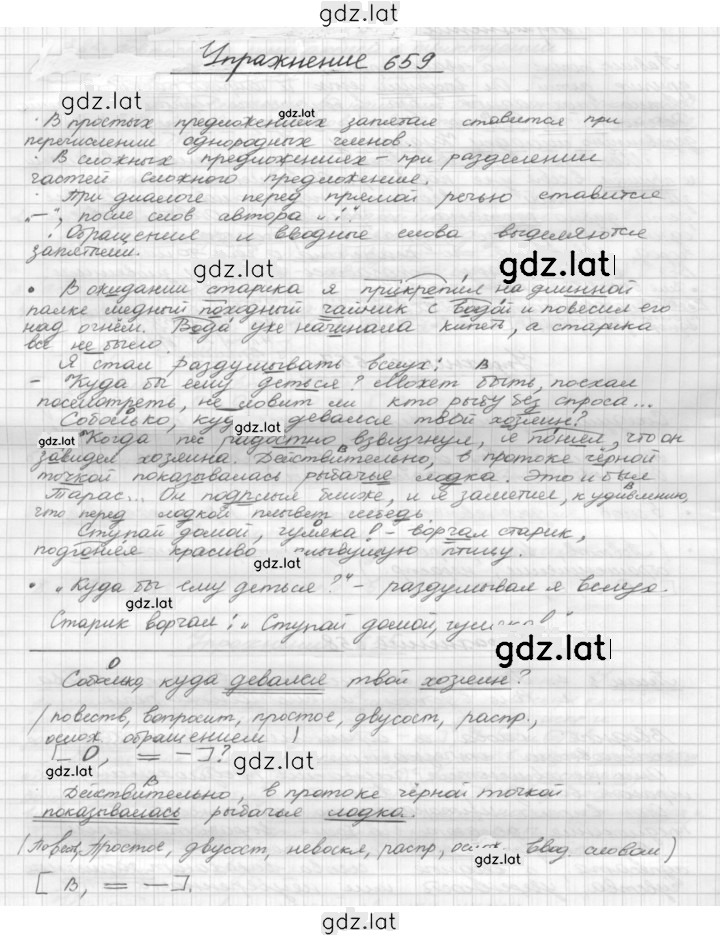 gdz.lat
Упражнение 659
gdz.lat
gdz.lat
· В простых предложениях запятая ставится при
перечислении однородных членов.
· В сложных предложениях – при разделении
частей сложного предложения.
· При диалоге перед прямой речью ставится
„—“, после слов автора „:“
· Обращения и вводные слова выделяются
запятыми.
gdz.lat
gdz.lat
• В ожидании старика я прикрепил на длинной
палке медный походный чайник с водой и повесил его
над огнём. Вода уже начинала кипеть, а старика
всё не было.
Я стал раздумывать вслух:
– „Куда бы ему деться? Может быть, поехал
посмотреть, не ловит ли кто рыбу без спроса...
Соболько, куд девался твой хозяин?
gdz.lat
gdz.lat
Когда пёс радостно взвизгнул, я понял, что он
завидел хозяина. Действительно, в протоке чёрной
точкой показывалась рыбачья лодка. Это и был
Тарас... Он подплыл ближе, и я заметил, к удивлению,
что перед лодкой плывёт лебедь.
Ступай домой, гуляка! – ворчал старик,
подгоняя красиво плывущую птицу.
gdz.lat
• „Куда бы ему деться?“ – раздумывал я вслух.
gdz.lat
Старик ворчал: „Ступай домой,
gdz.lat
Соболько, куда девался твой хозяин?
(повеств, вопросит, простое, двусост, распр.,
ослож. обращением)
[– О, = –]?
gdz.lat
gdz.lat
В
Действительно, в протоке чёрной точкой
показывалась рыбачья лодка.
(Повест, простое, двусост, невоскл, распр, ввод. словом)
gdz.lat
[В, = –].
gdz.lat